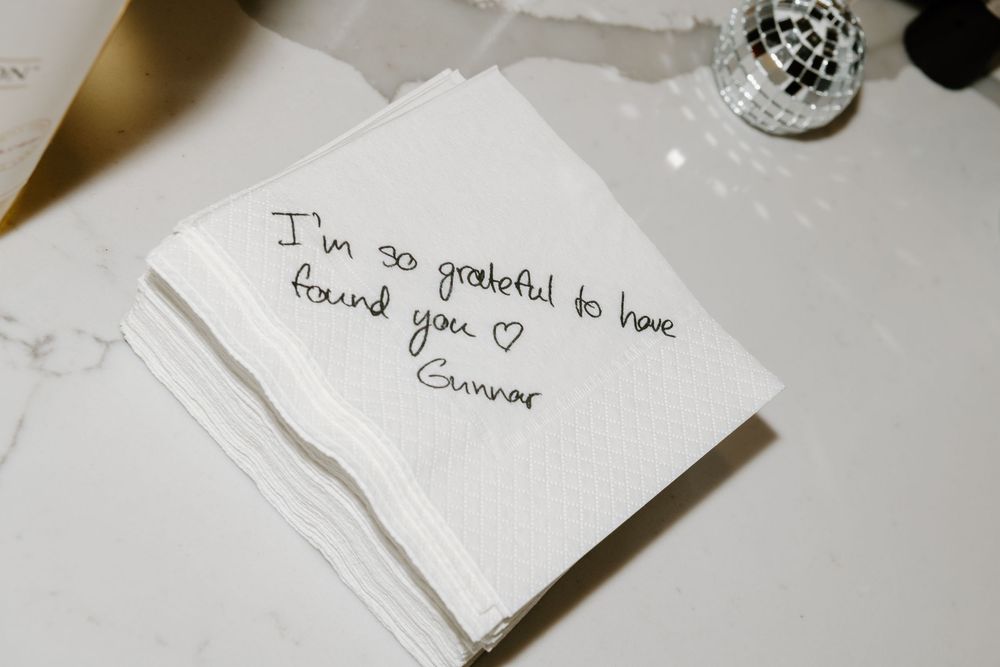 I'm so grateful to have
found you ♡
Gunnar